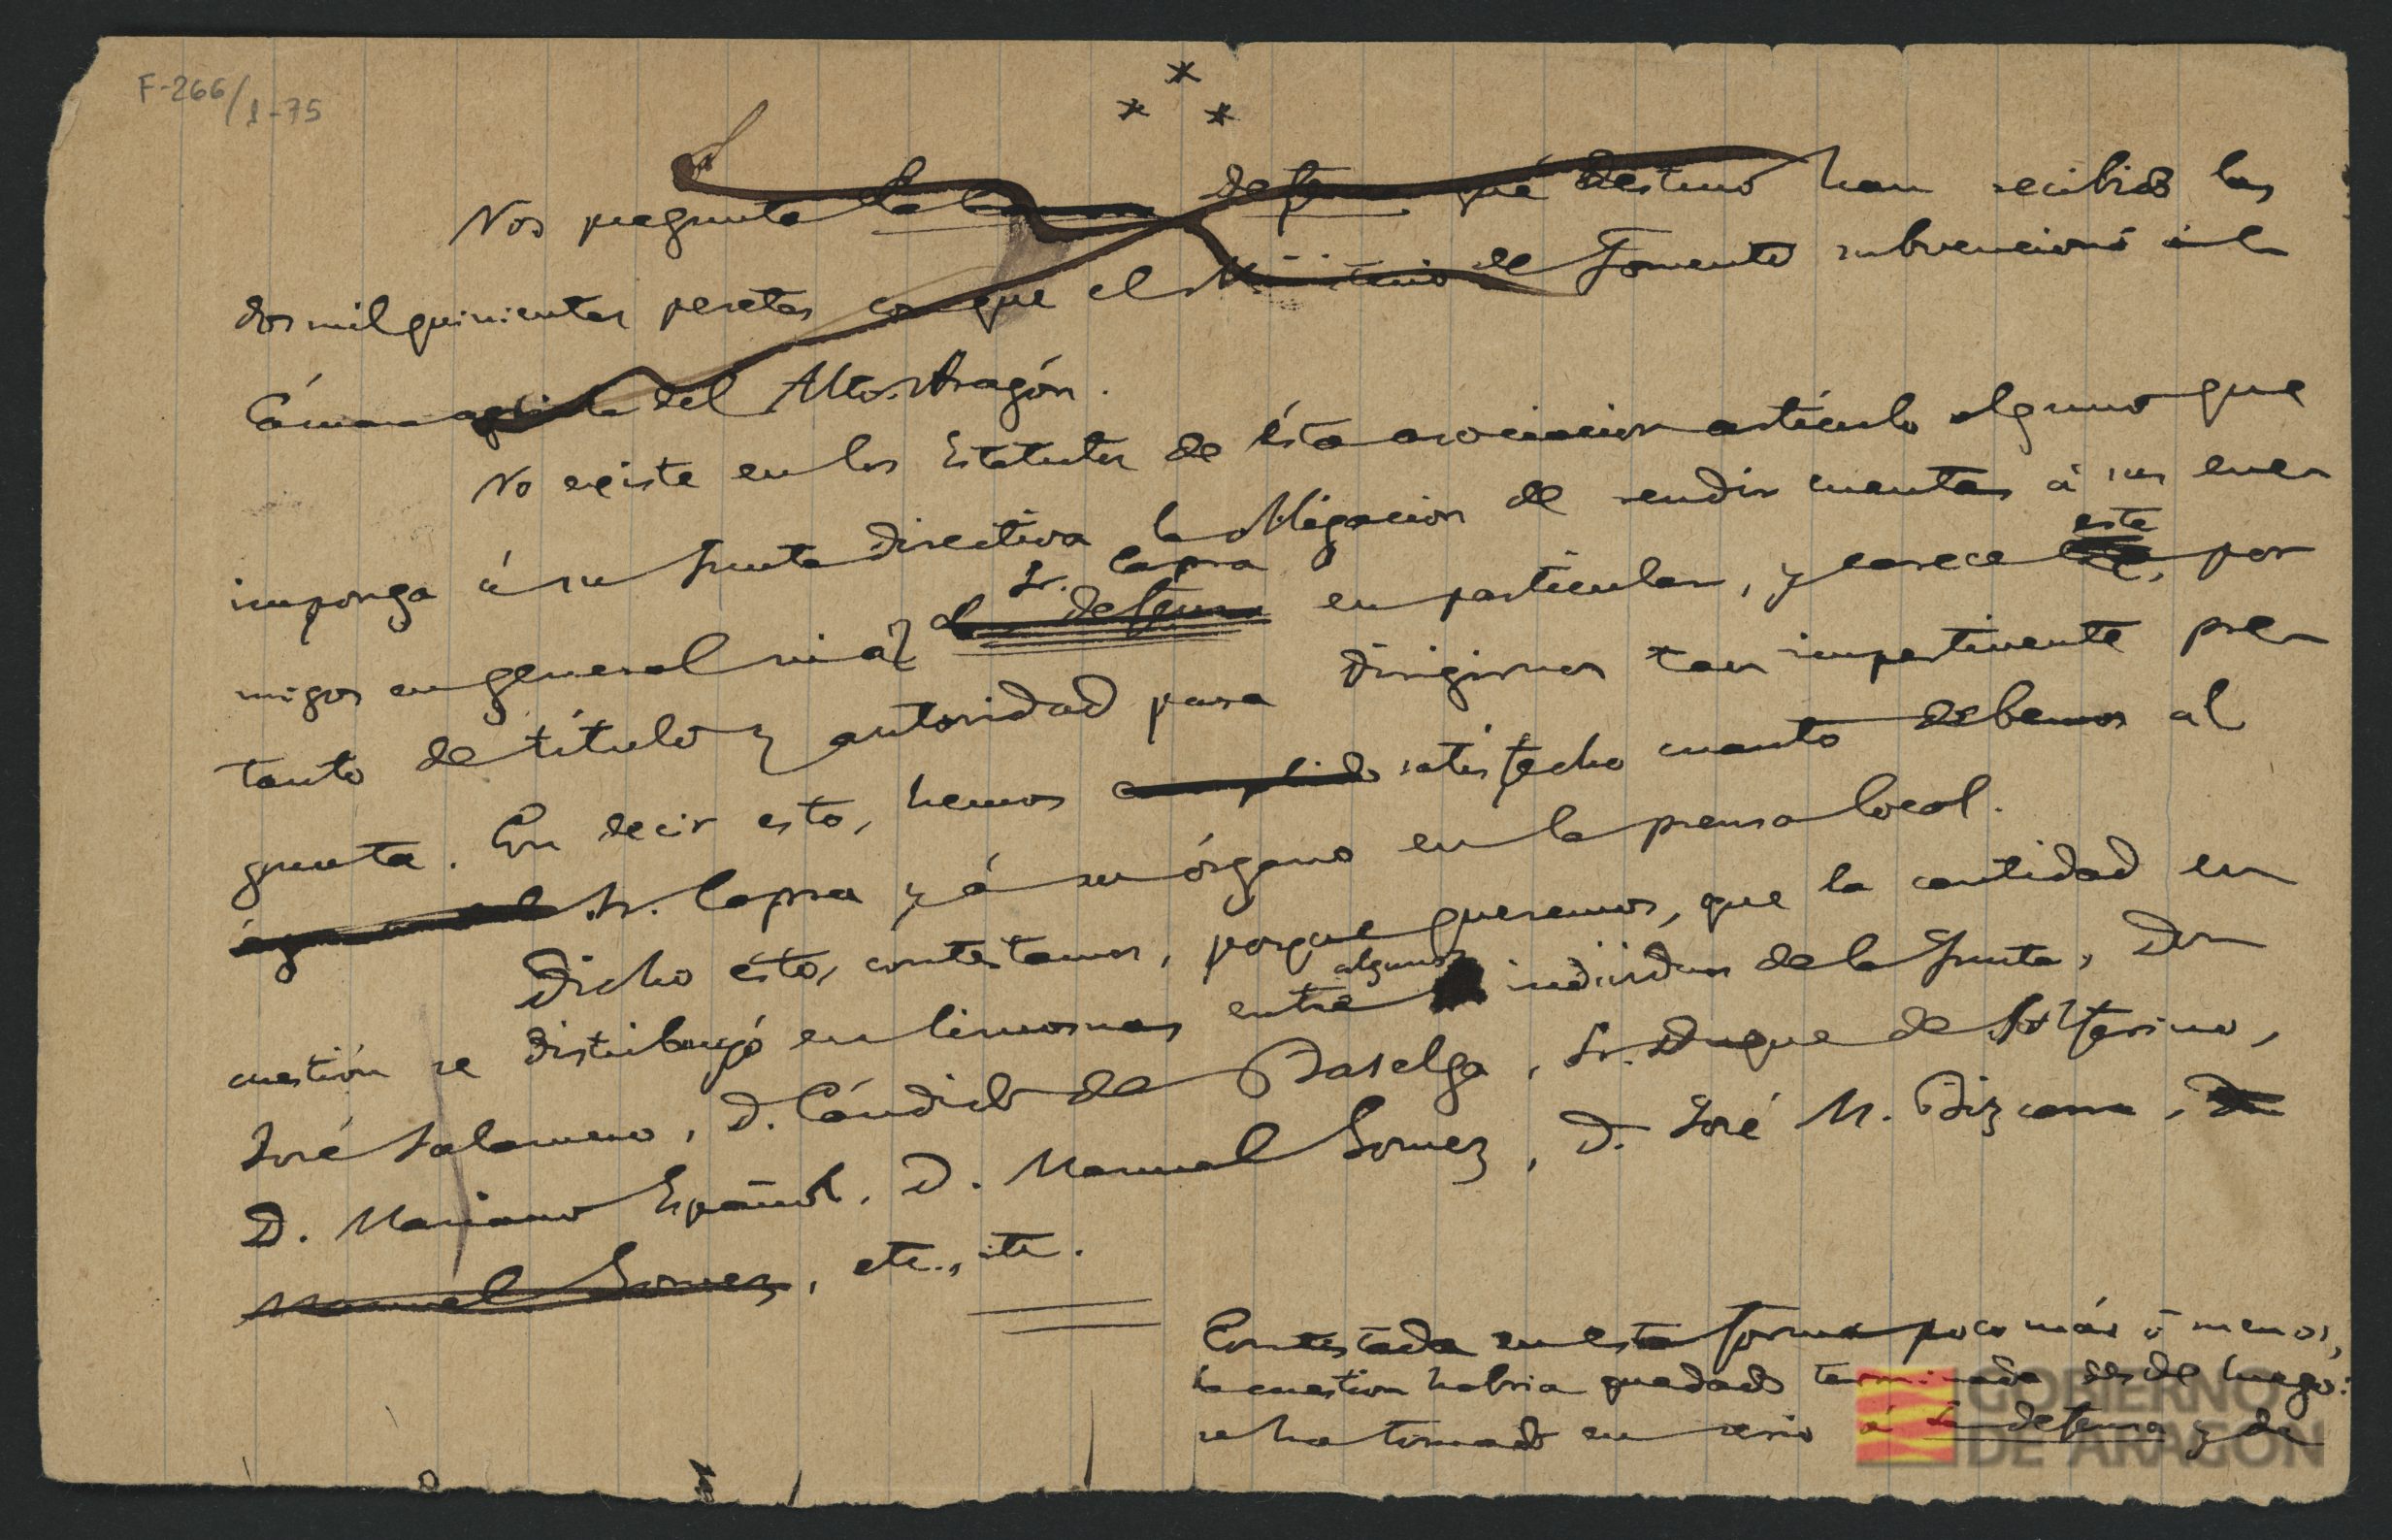 F-266/1-75
* * *
Nos pregunta La defensa qué destino han recibido las
dos mil quinientas pesetas con que el Ministerio de Fomento subvencionó á la
Cámara agrícola del Alto-Aragón.
No existe en los Estatutos de ésta asociacion artículo alguno que
imponga á su Junta directiva la obligacion de rendir cuentas á sus ene-
migos en general ni al Sr. Capra en particular, y carece este, por
tanto de título y autoridad para dirigirnos tan impertinente pre-
gunta. Con decir esto, hemos cumplido satisfecho cuanto debemos al
Sr. Capra y á su órgano en la prensa local.
Dicho ésto, contestamos, porque queremos, que la cantidad en
cuestión se distribuyó en limosnas entre algunos individuos de la Junta, Don
José Salamero, D. Cándido de Baselga, Sr. Duque de Solferino,
D. Mariano Español, D. Manuel Gomez, D. José M. Bizcarra, Don
Manuel Gomez, etc., etc.
Contestada en esta forma poco más ó menos,
la cuestion habria quedado terminada desde luego:
se ha tomado en serio á La defensa y de
GOBIERNO
DE ARAGON